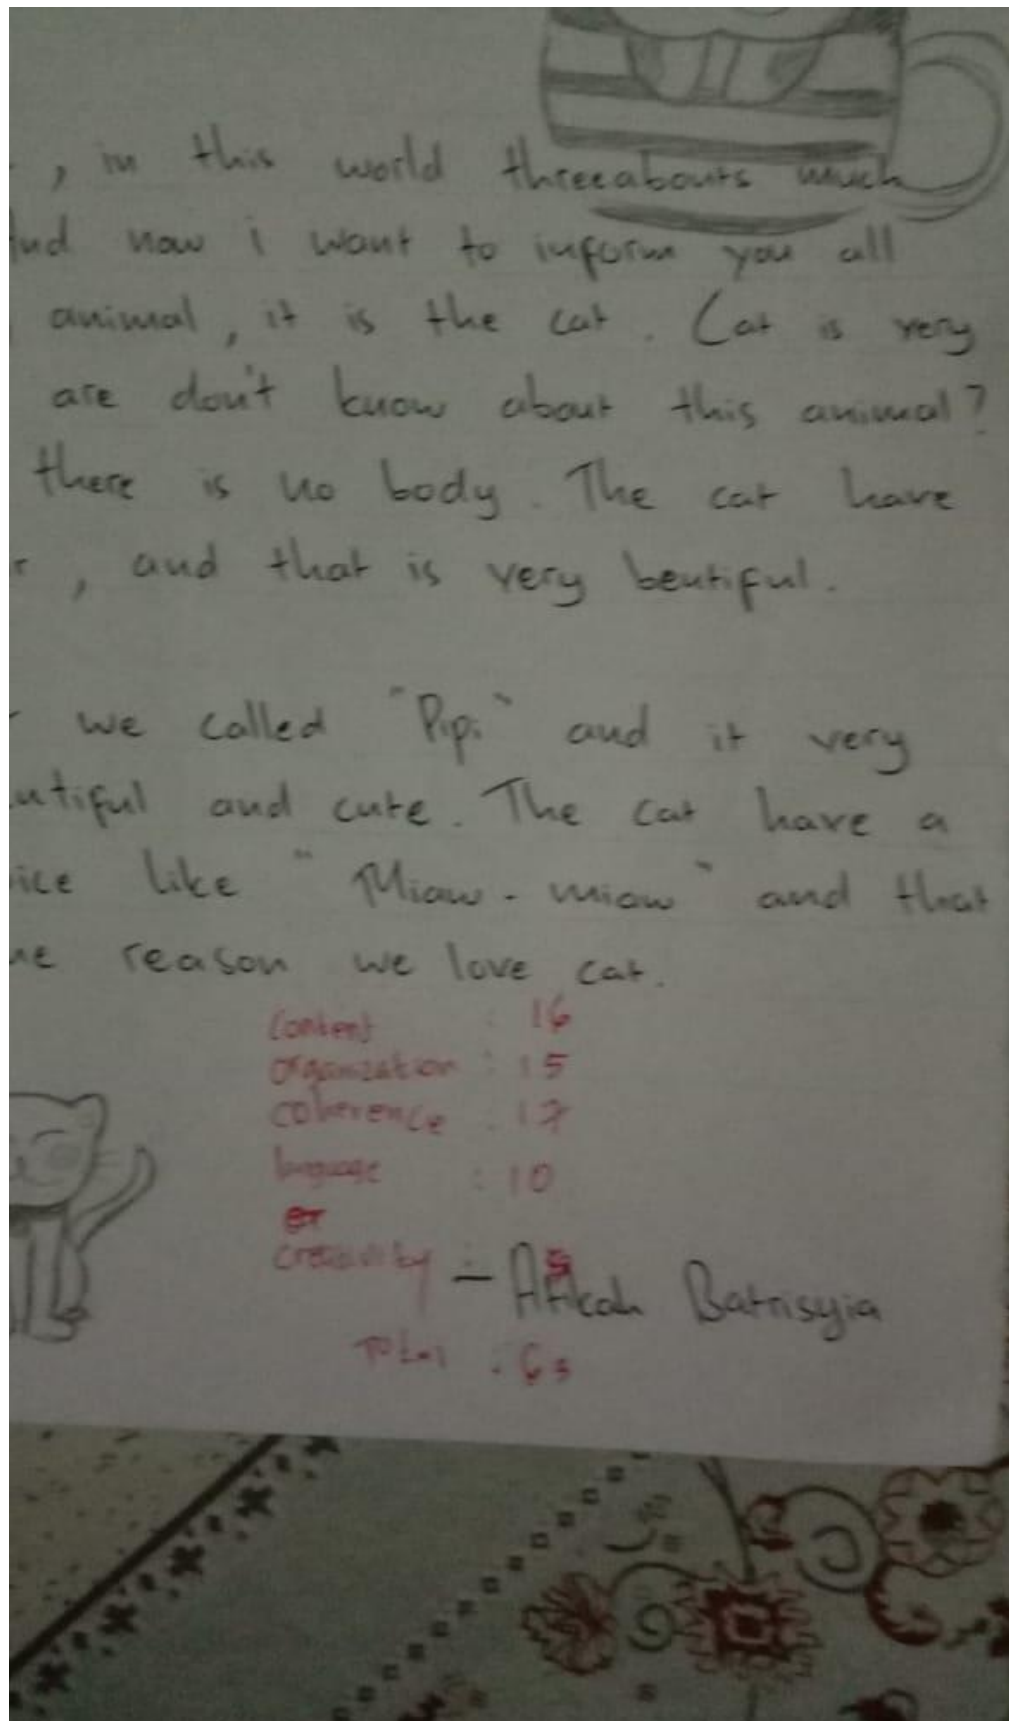 , in this world threeabouts much
And now i want to inform you all
animal, it is the cat. Cat is very
are don't know about this animal?
there is no body. The cat have
r, and that is very beutiful.
we called "Pipi" and it very
utiful and cute. The cat have a
ice like "Miaw - miaw" and that
he reason we love cat.
content : 16
organization : 15
coherence : 17
language : 10
creativity : 5
- Afikah Batrisyia
Total : 63